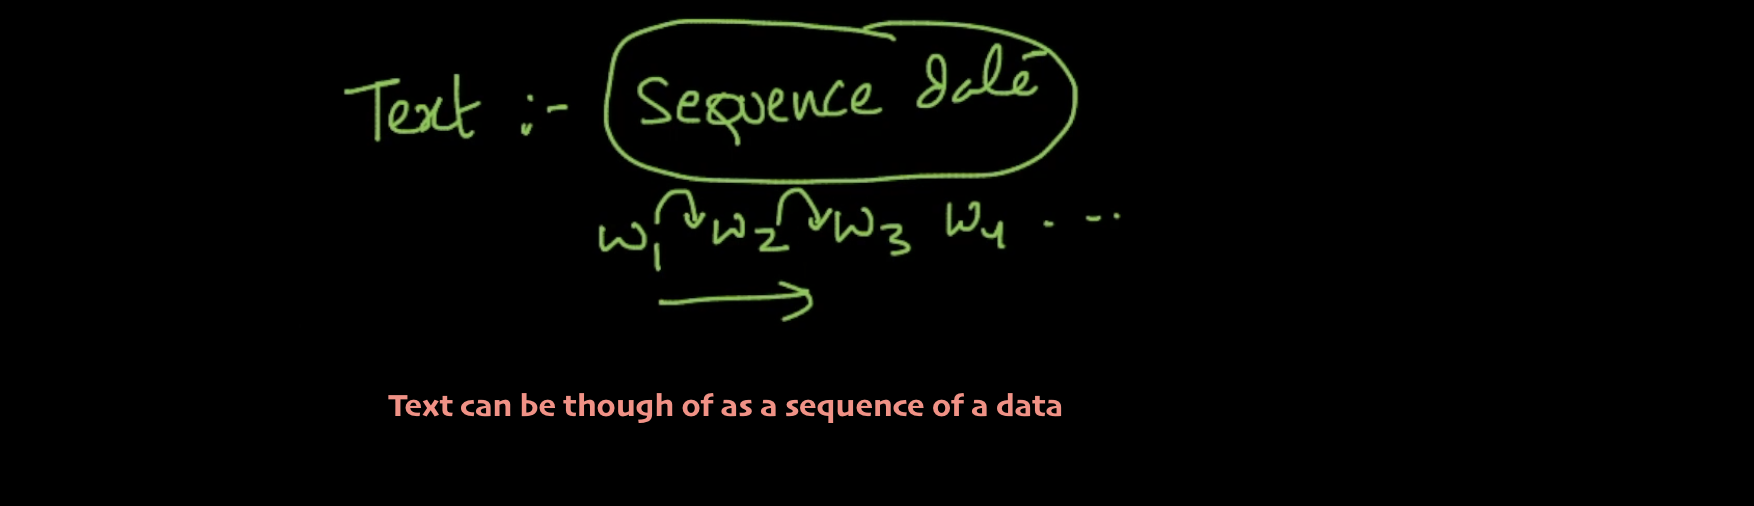 Text :- Sequence data
w1 w2 w3 w4 . - - .
Text can be though of as a sequence of a data